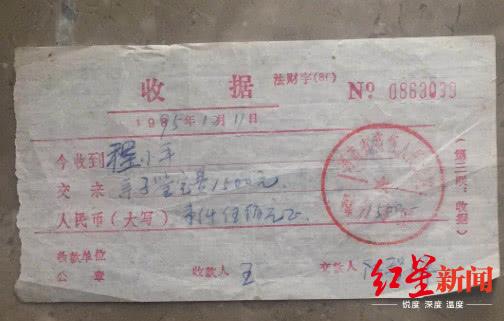 收 据 法财字(86) № 0863039
1995年12月11日
今收到 程小平
交来 亲子鉴定费1500元.
人民币(大写) 壹仟伍佰元正
收款单位
公 章 收款人 王 交款人
(第三联:收据)
1500
红星新闻
锐度 深度 温度